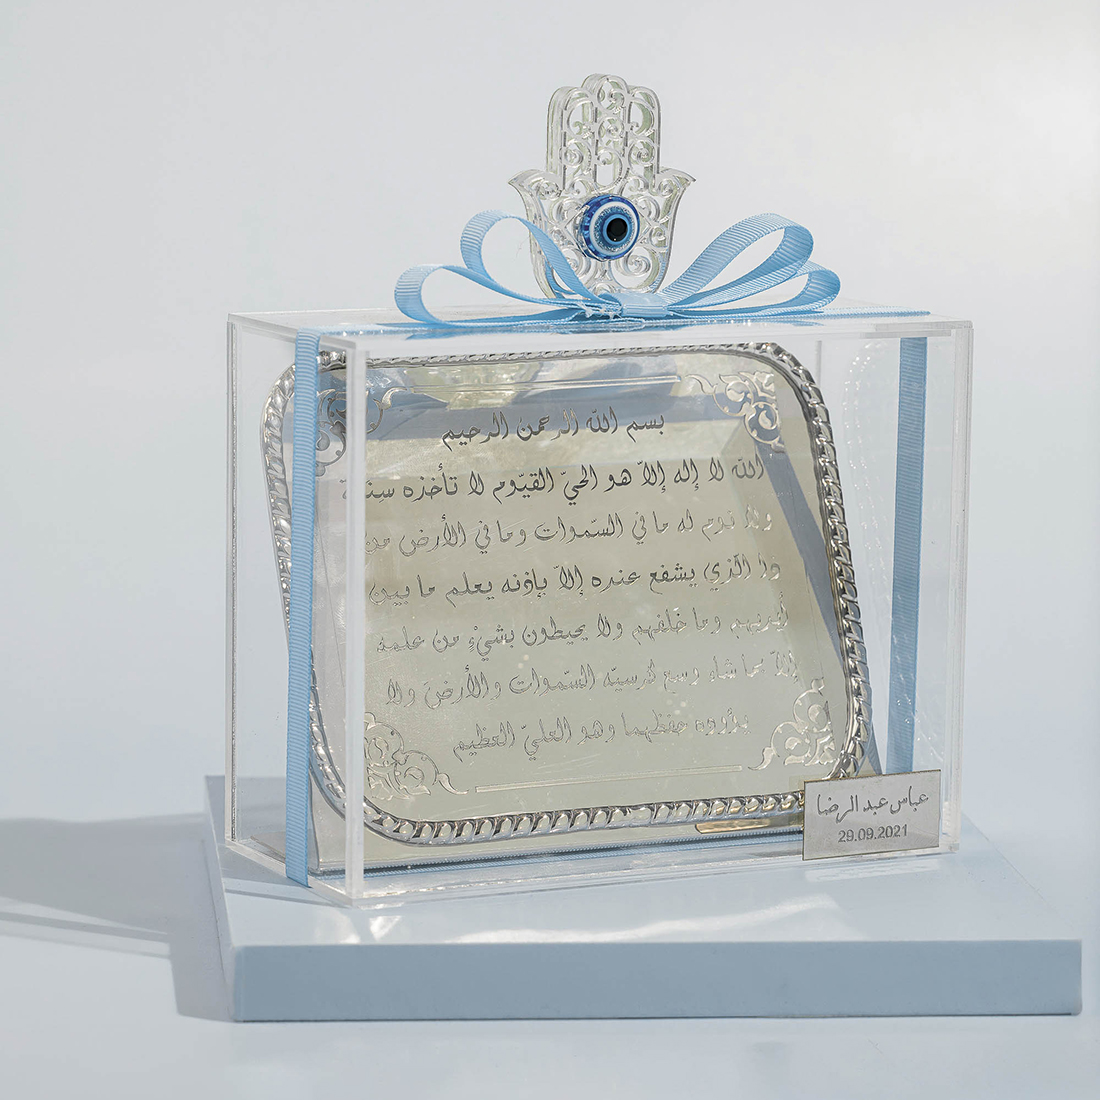 بسم الله الرحمن الرحيم
الله لا إله إلاّ هو الحيّ القيّوم لا تأخذه سنة
ولا نوم له ما في السّموات وما في الأرض من
ذا الّذي يشفع عنده إلاّ بإذنه يعلم ما بين
أيديهم وما خلفهم ولا يحيطون بشيءٍ من علمه
إلاّ بما شاء وسع كرسيّه السّموات والأرض ولا
يؤوده حفظهما وهو العليّ العظيم
عباس عبد الرضا
29.09.2021